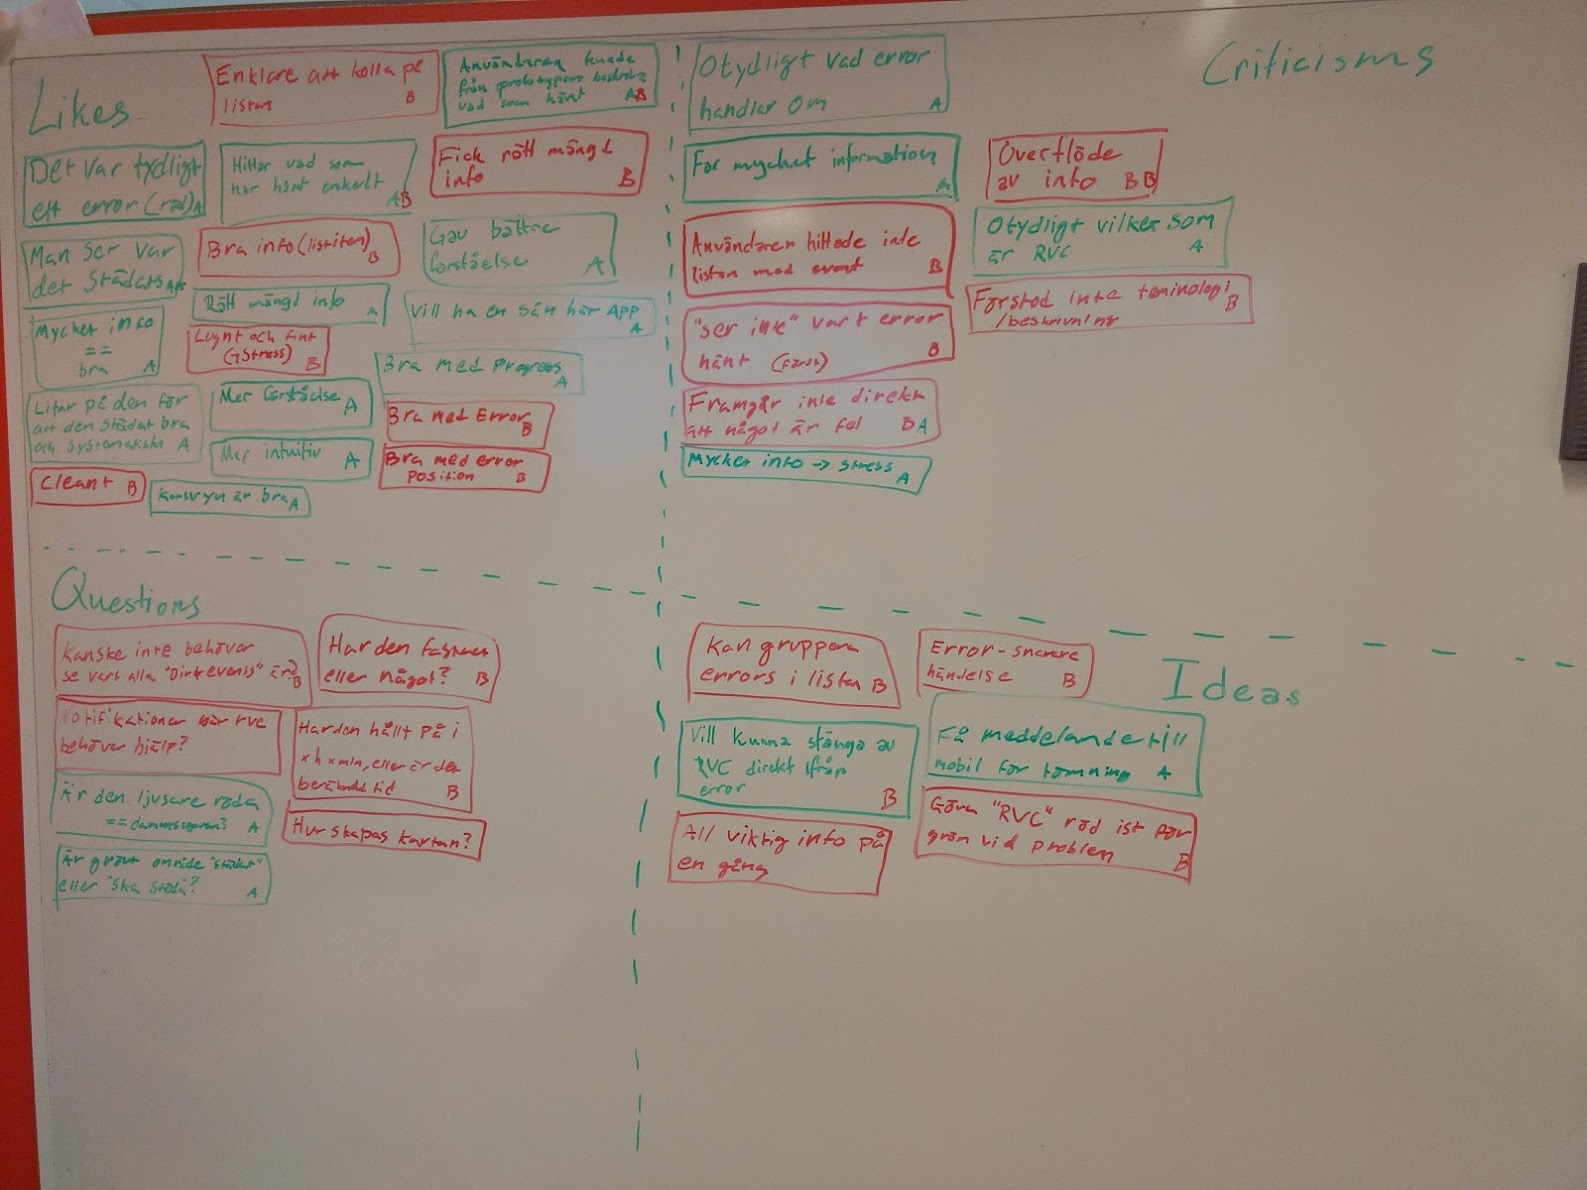 Likes
Enklare att kolla på
listan
B
Användaren kunde
från prototypen beskriva
vad som hänt AB
Det var tydligt
ett error (röd) A
Hittar vad som
har hänt enkelt AB
Fick rätt mängd
info B
Man ser var
det städats
Bra info (listiten) B
Gav bättre
förståelse A
Rätt mängd info A
Vill ha en sån här App
A
Mycket info
==
bra A
Lugnt och fint
(stress) B
Bra med Progress
A
Litar på den för
att den städat bra
och systematiskt A
Mer förståelse A
Bra med Error
B
Mer intuitiv A
Bra med error
position B
Cleant B
är bra A
Criticisms
Otydligt vad error
handlar om A
För mycket information
A
Överflöde
av info BB
Användaren hittade inte
listan med event B
Otydligt vilken som
är RVC A
"ser inte" vart error
hänt B
Förstod inte terminologi
/beskrivning B
Framgår inte direkt
att något är fel BA
Mycket info -> stress
A
Questions
Kanske inte behöver
se vart alla "Dirtevents" är? B
Har den fastnat
eller något? B
Notifikationer när rvc
behöver hjälp?
Har den hållt på i
x h x min, eller är det
beräknad tid B
Är den ljusare röda
== dammsugaren? A
Hur skapas kartan?
Är grönt område "städat"
eller "ska städa"? A
Ideas
Kan gruppera
errors i listan B
Error - snarare
händelse B
Vill kunna stänga av
RVC direkt ifrån
error B
Få meddelande till
mobil för tömning A
All viktig info på
en gång
Göra "RVC" röd ist för
grön vid problem
B